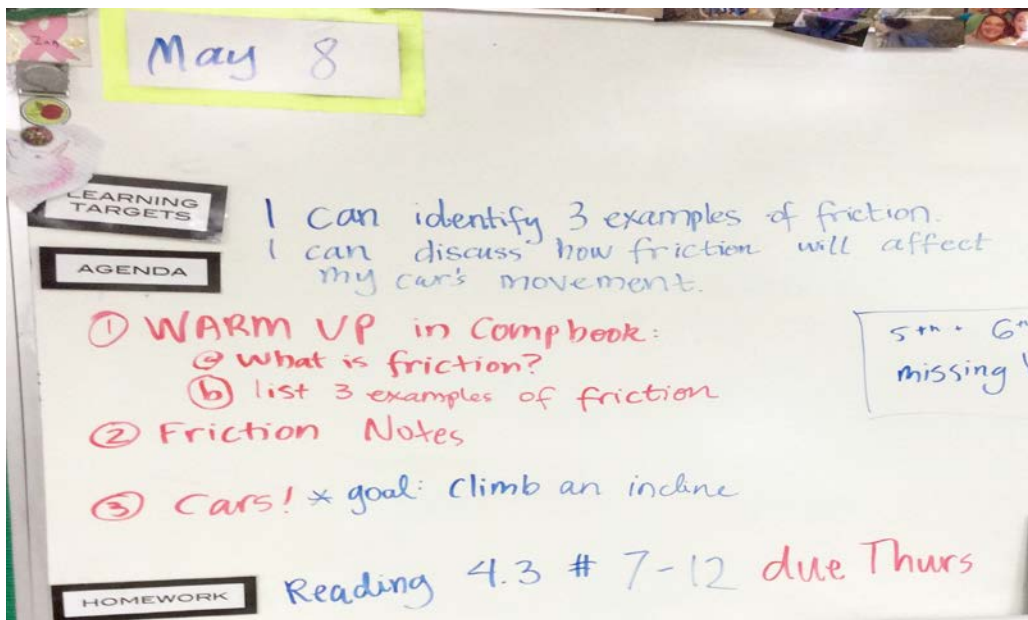 May 8
LEARNING TARGETS
I can identify 3 examples of friction.
I can discuss how friction will affect
my car's movement.
AGENDA
① WARM UP in Compbook:
ⓐ What is friction?
ⓑ list 3 examples of friction
5th + 6th
missing
② Friction Notes
③ Cars! * goal: Climb an incline
HOMEWORK
Reading 4.3 # 7-12 due Thurs